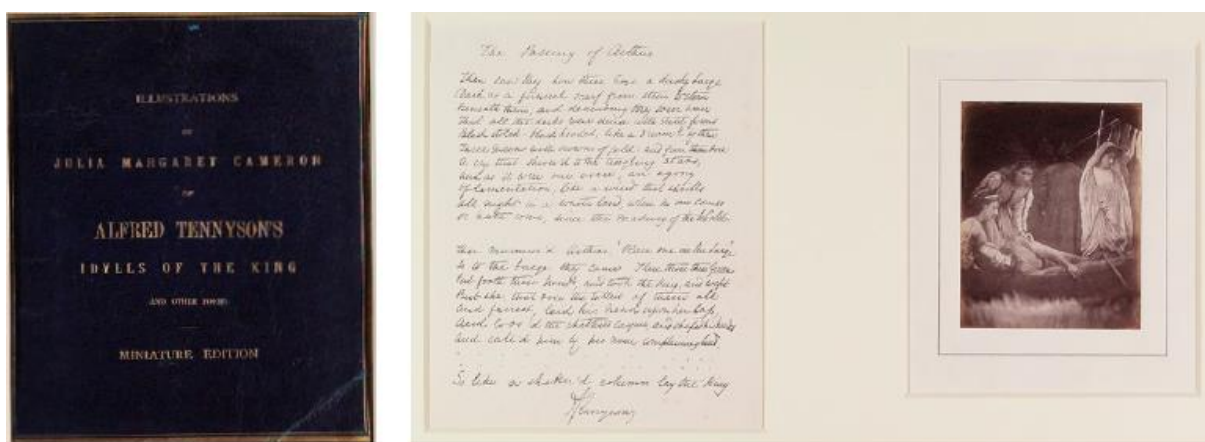 ILLUSTRATIONS
BY
JULIA MARGARET CAMERON
OF
ALFRED TENNYSON'S
IDYLLS OF THE KING
AND OTHER POEMS
MINIATURE EDITION
The Passing of Arthur
Then saw they how there hove a dusky barge
Dark as a funeral scarf from stem to stern
Beneath them, and descending they were ware
That all the decks were dense with stately forms
Black stoled, black hooded, like a dream by these
Three Queens with crowns of gold and from them rose
A cry that shiver'd to the tingling stars,
And as it were one voice, an agony
Of lamentation, like a wind that shrills
All night in a waste land, when no one comes
Or hath come, since the making of the world.
Then murmur'd Arthur "Place me in the barge"
So to the barge they came. There those three Queens
Put forth their hands, and took the King, and wept
But she, that rose the tallest of them all
And fairest, laid his head upon her lap
And loosed the shatter'd casque, and chafed his hands
And call'd him by his name complaining loud.
So like a shatter'd column lay the King
ATennyson